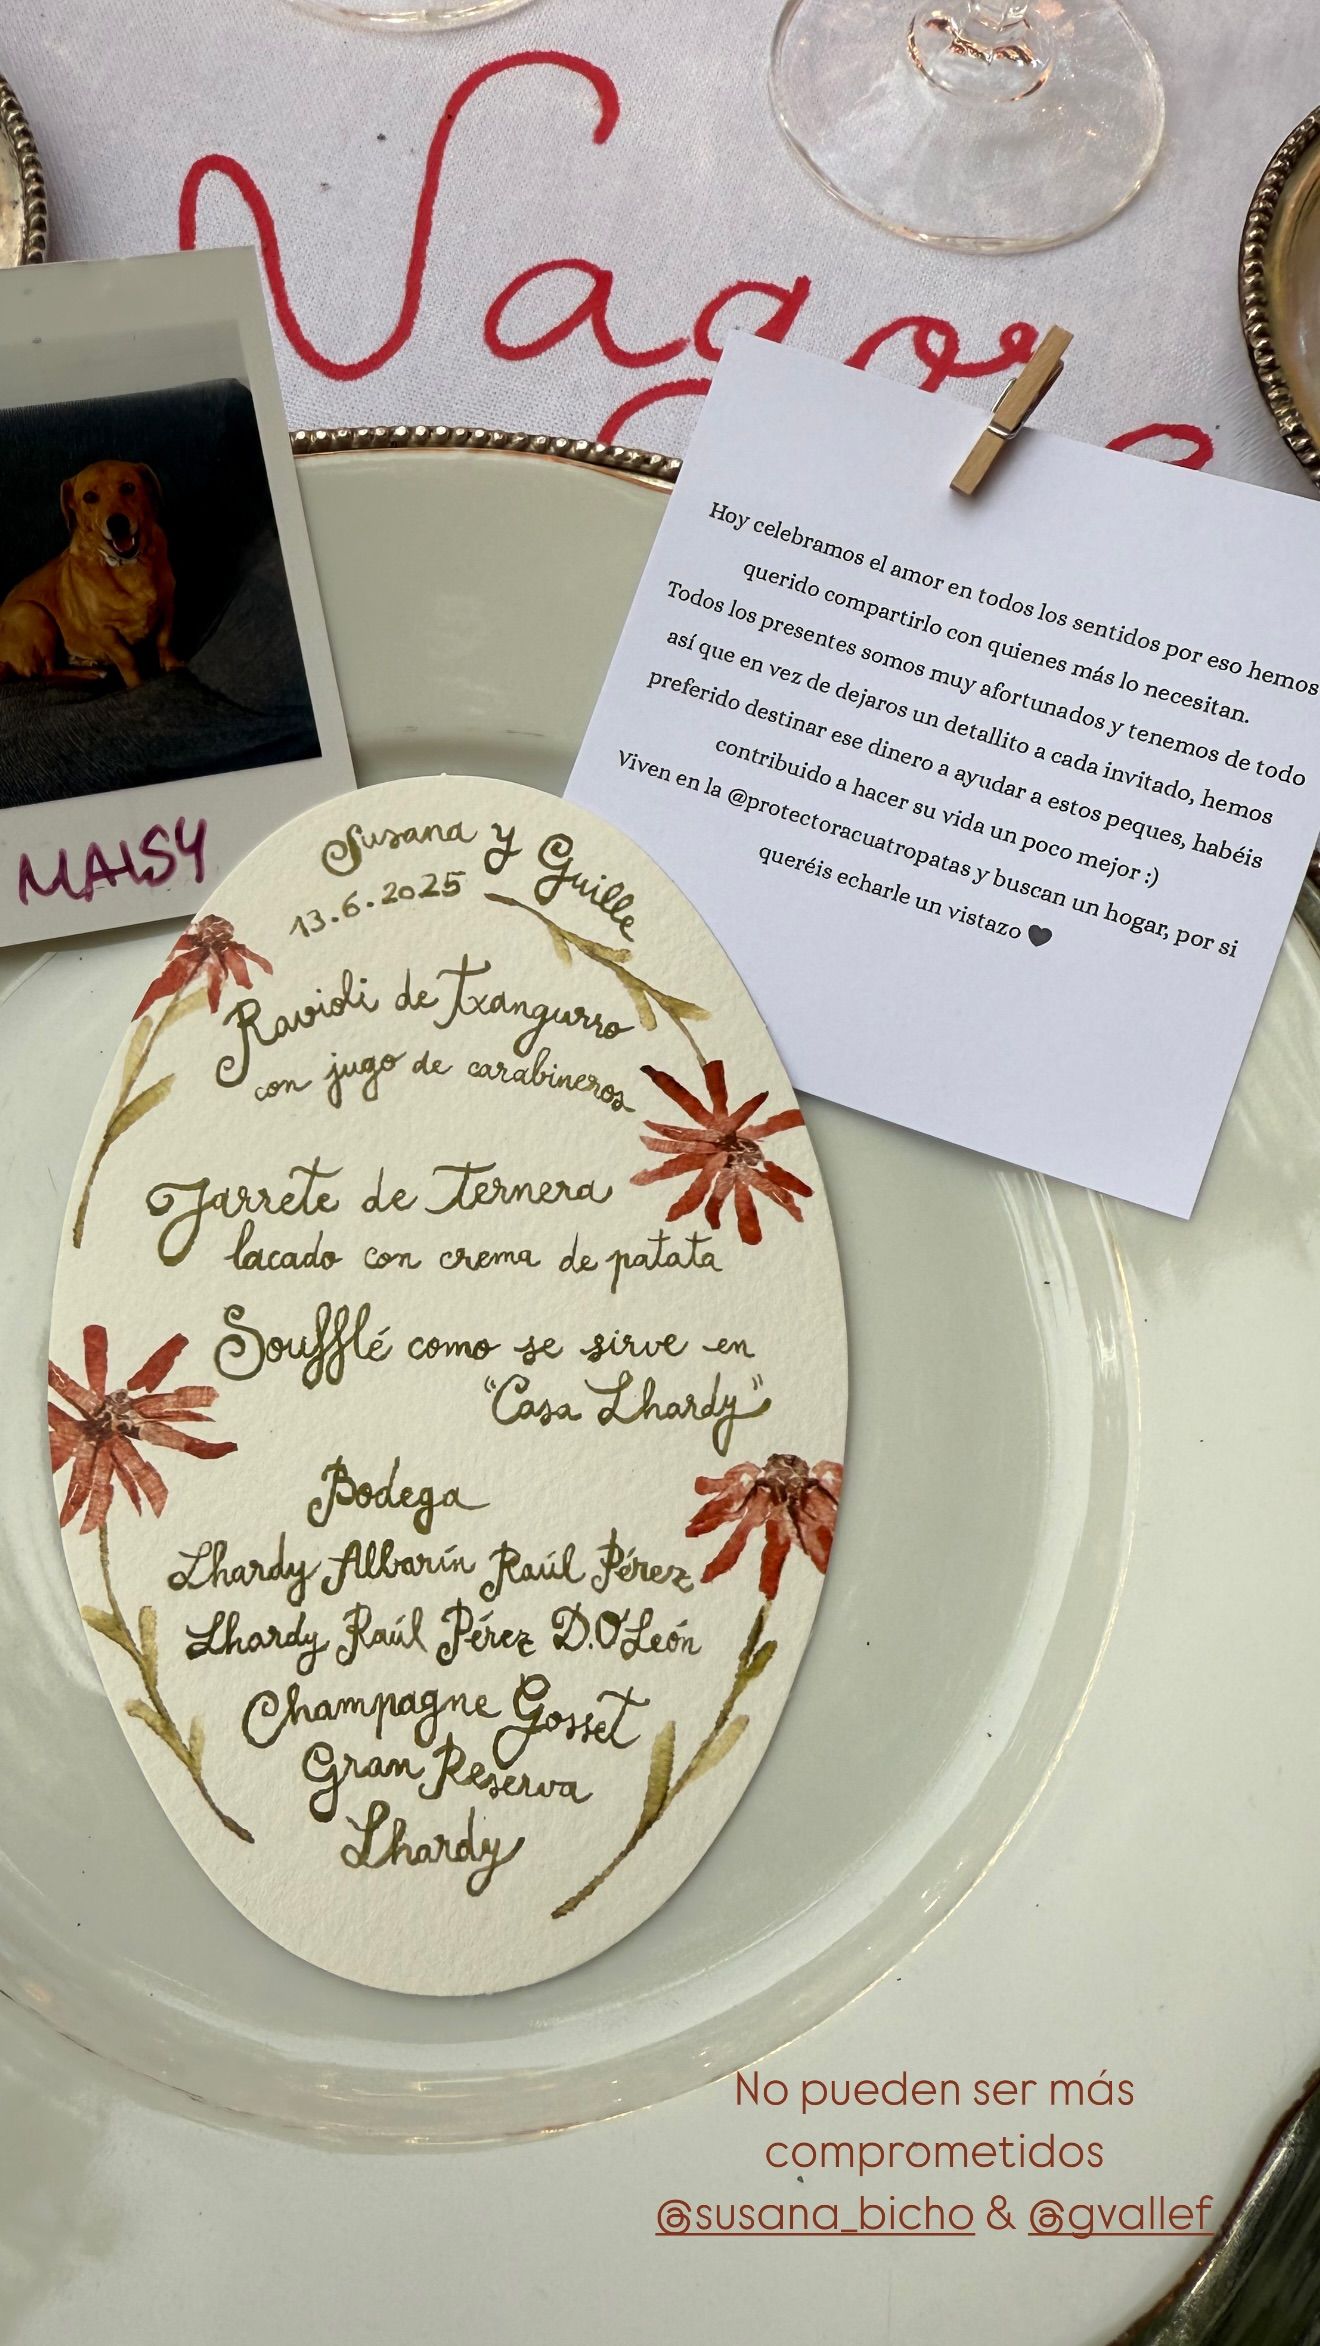 Vago
Hoy celebramos el amor en todos los sentidos por eso hemos
querido compartirlo con quienes más lo necesitan.
Todos los presentes somos muy afortunados y tenemos de todo
así que en vez de dejaros un detallito a cada invitado, hemos
preferido destinar ese dinero a ayudar a estos peques, habéis
contribuido a hacer su vida un poco mejor :)
Viven en la @protectoracuatropatas y buscan un hogar, por si
queréis echarle un vistazo 🖤
MAISY
Susana y Guille
13.6.2025
Ravioli de Txangurro
con jugo de carabineros
Jarrete de Ternera
lacado con crema de patata
Soufflé como se sirve en
"Casa Lhardy"
Bodega
Lhardy Albarín Raúl Pérez
Lhardy Raúl Pérez D.O León
Champagne Gosset
Gran Reserva
Lhardy
No pueden ser más
comprometidos
@susana_bicho & @gvallef